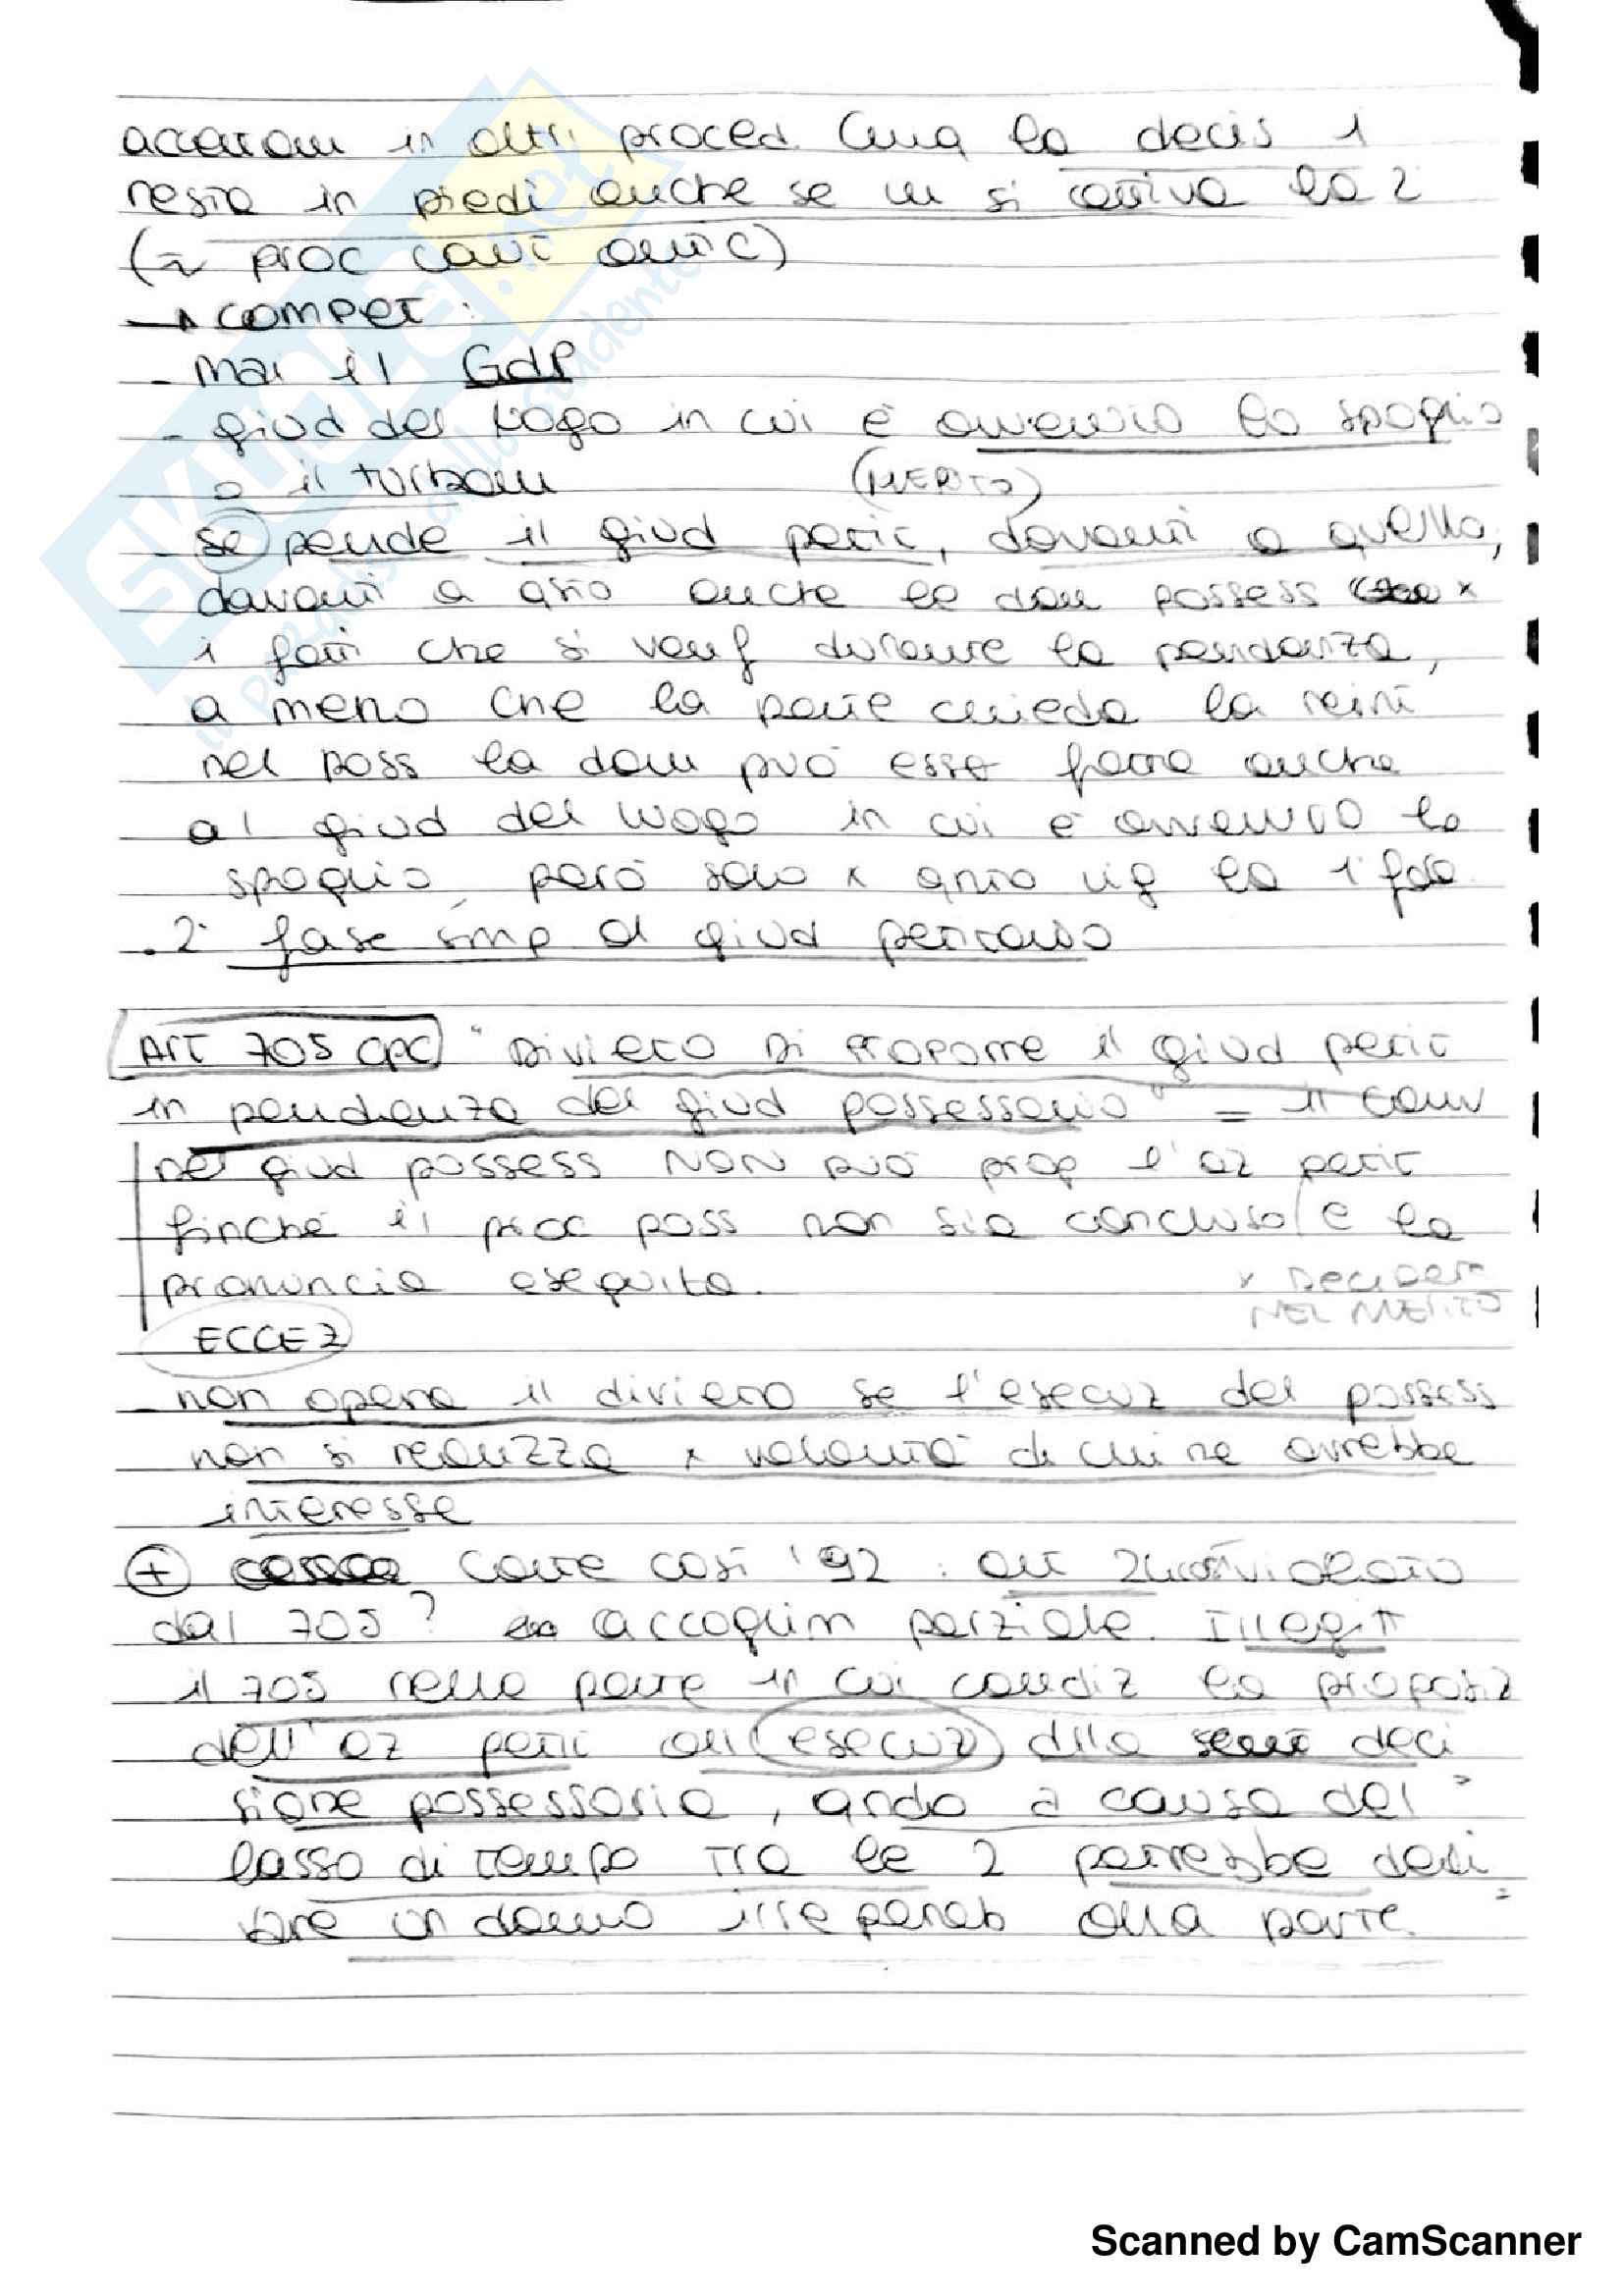 accertam in altri proced. Cmq la decis 1
resta in piedi anche se nn si attiva la 2
(~ proc caut antic)
→ compet:
- Mai il GdP
- giud del luogo in cui è avvenuto lo spoglio
o il turbam (MERITO)
- se pende il giud petit, davanti a quello,
davanti a qsto anche le dom possess x
i fatti che si verif durante la pendenza,
a meno che la parte chieda la reint
nel poss la dom può esse fatta anche
al giud del luogo in cui è avvenuto lo
spoglio, però solo x qnto rig la 1° fase.
. 2° fase smp al giud petitorio
ART 705 cpc "Divieto di proporre il giud petit
in pendenza del giud possessorio" = il conv
nel giud possess NON può prop l'az petit
finché il proc poss non sia concluso e la
pronuncia eseguita.
x DECIDERE
NEL MERITO
ECCEZ
- non opera il divieto se l'esecuz del possess
non si realizza x volontà di chi ne avrebbe
interesse
+ Corte cost '92: art 24 cost violato
dal 705? accoglim parziale. Illegitt
il 705 nella parte in cui condiz la proposiz
dell'az petit all'esecuz dlla deci
sione possessoria, qndo a causa del
lasso di tempo tra le 2 potrebbe deri
vare un danno irreparab alla parte.
SKUOLA.net
il paradiso dello studente
Scanned by CamScanner